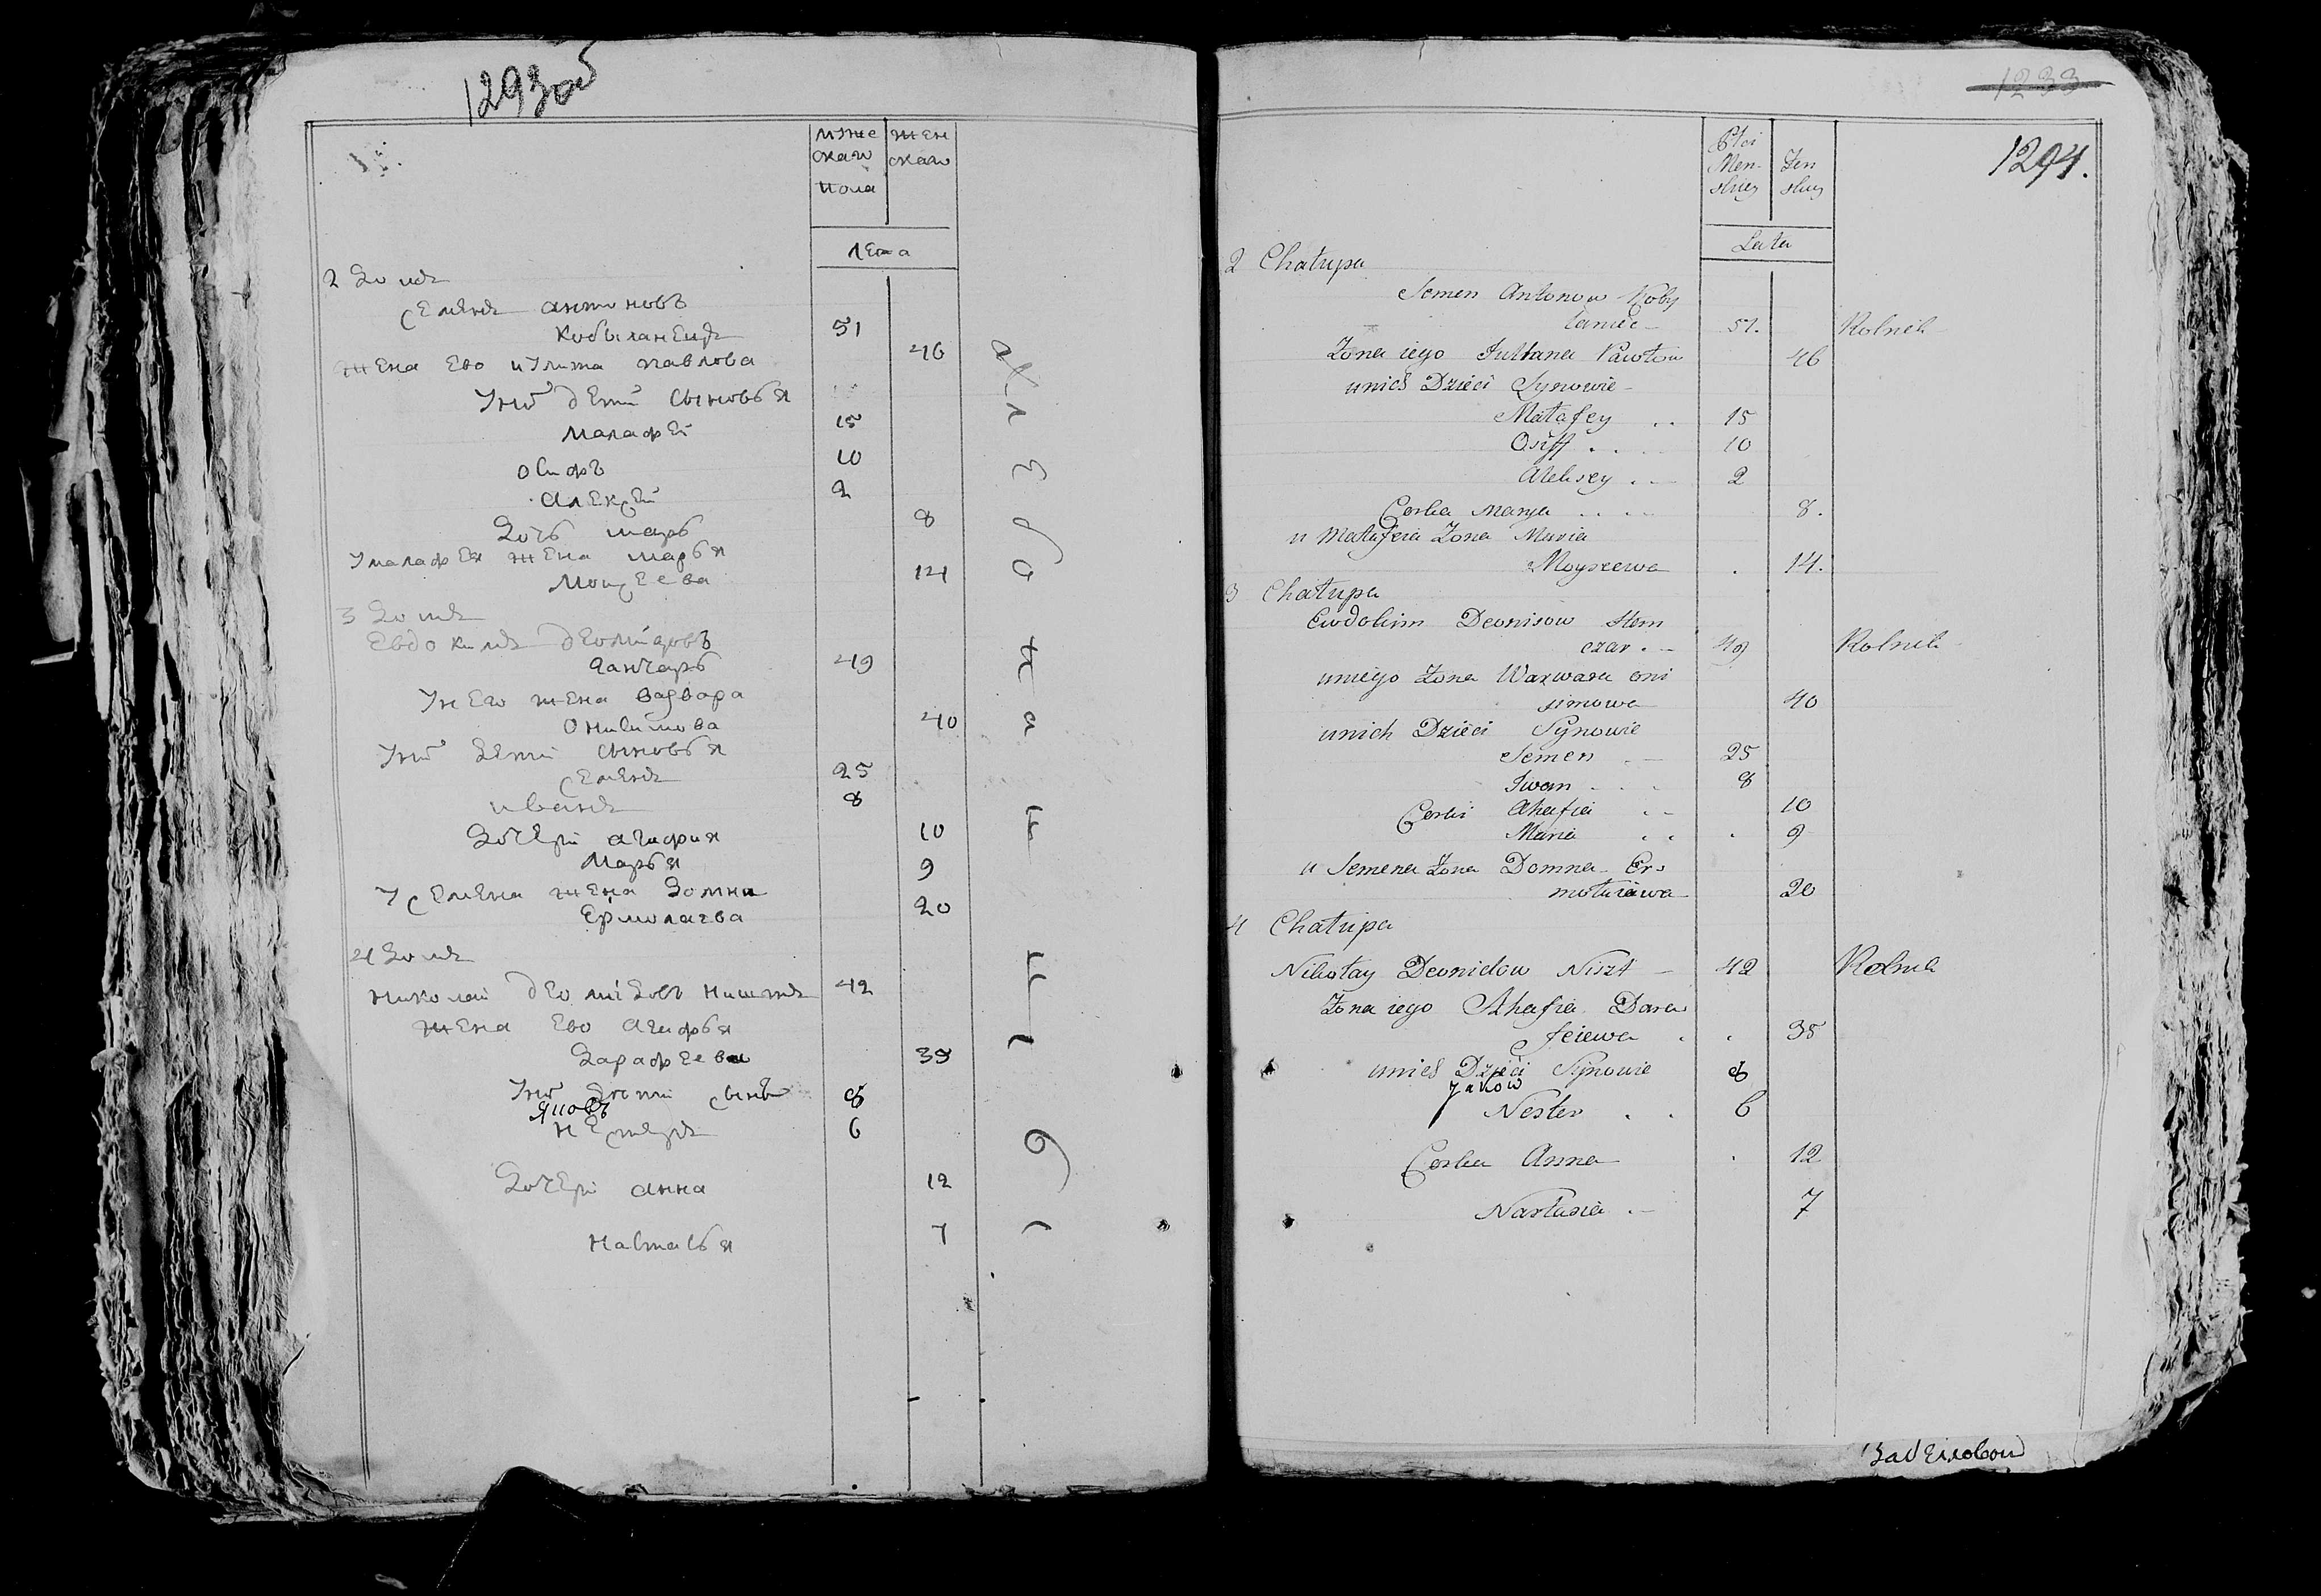 1293об
мꙋже женс
скаго скаго
пола
лета
2 Домъ
Семенъ антоновъ
Кобыланецъ 51
жена Ево иꙋлита павлова 46
Унiхъ детiй Сыновья
малафей 15
осифъ 10
алексей 2
Дочь марья 8
У малафея жена марья
Моисеева 14
3 Домъ
Евдокимъ деонисовъ
ганчаръ 49
У него жена варвара
Онисимова 40
Унiхъ детiй сыновья
Семенъ 25
иванъ 8
Дочери агафия 10
Марья 9
У Семена жена Домна
Ермолаева 20
4 Домъ
николай деонiсовъ нишътъ 42
жена Ево агафья
Дарафеева 35
Унiхъ детiй сынъ 8
Яковъ
нестеръ 6
Дочерi анна 12
настасья 7
1233
1294.
Płci
Męn- Żen
skiey skiey
Lata
2 Chałupa
Semen Antonow Koby
łaniec 51. Rolnik
Żona iego Julitana Pawłow 46
unich Dzieci Synowie
Małafey .. 15
Osiff . . 10
Aleksey . 2
Corka Marya . . . . 8.
u Małafeia Żona Maria
Moyszewa . 14.
3 Chałupa
Ewdokim Deonisow Hon
czar . 49 Rolnik
uniego Żona Warwara oni
simowa 40
unich Dzieci Synowie
Semen . 25
Iwan . . . 8
Corki Ahafia . . 10
Maria . . . 9
u Semena Żona Domna Er
mołaiewa 20
4 Chałupa
Nikołay Deonisow Niszt 42 Rolnik
Żona iego Ahafia Dara
feiewa . . 35
unich Dzieci Synowie 8
Jakow
Nester . . 6
Corka Anna . 12
Nastasia . 7